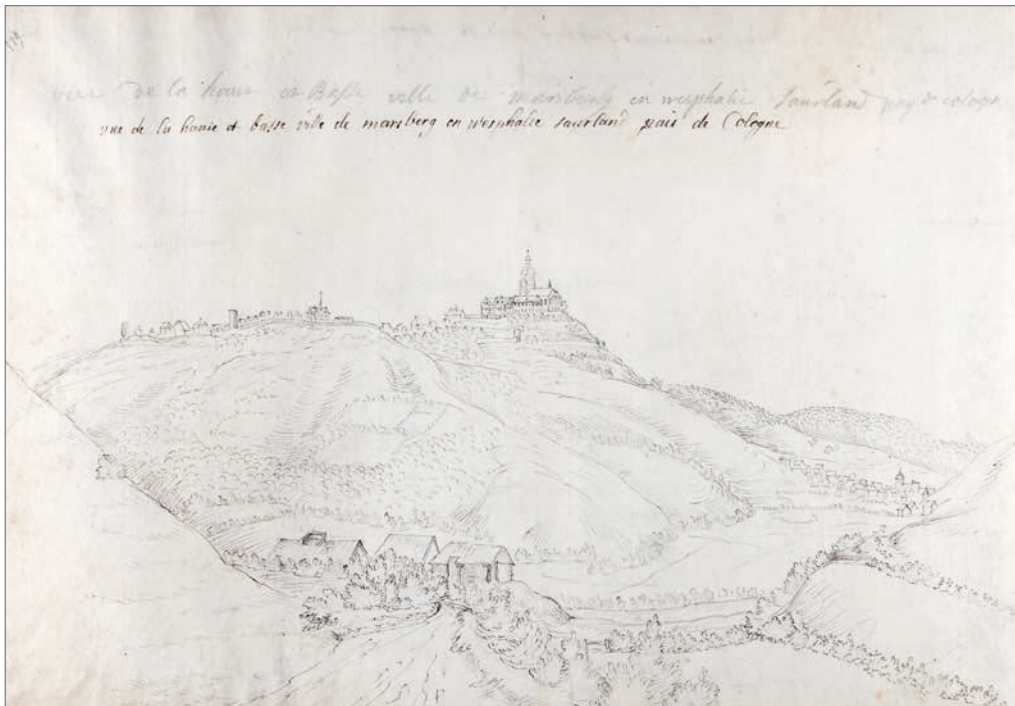 vue De la haute et Basse ville de marsberg en wesphalie Saurland pay d cologn
vue de la haute et basse ville de marsberg en wesphalie saurland pais de Cologne